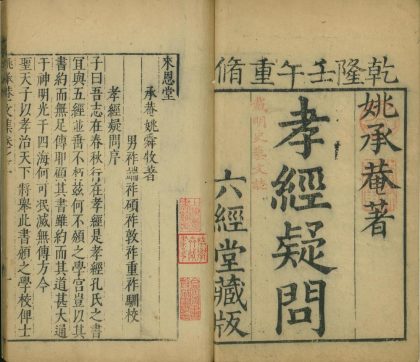 乾隆壬午重脩
姚承菴著
孝經疑問
六經堂藏版
載明史藝文誌
來恩堂
承菴姚舜牧著
男祚端祚碩祚敦祚重祚馴校
孝經疑問序
子曰吾志在春秋行在孝經是孝經孔氏之書
宜與五經並垂不朽茲何不頒之學官豈以其
書約而無是傳耶顧其書雖約而其道甚大通
于神明光于四海何可泯滅無傳方今
聖天子以孝治天下將舉此書頒之學校俾士
姚承菴文集卷之